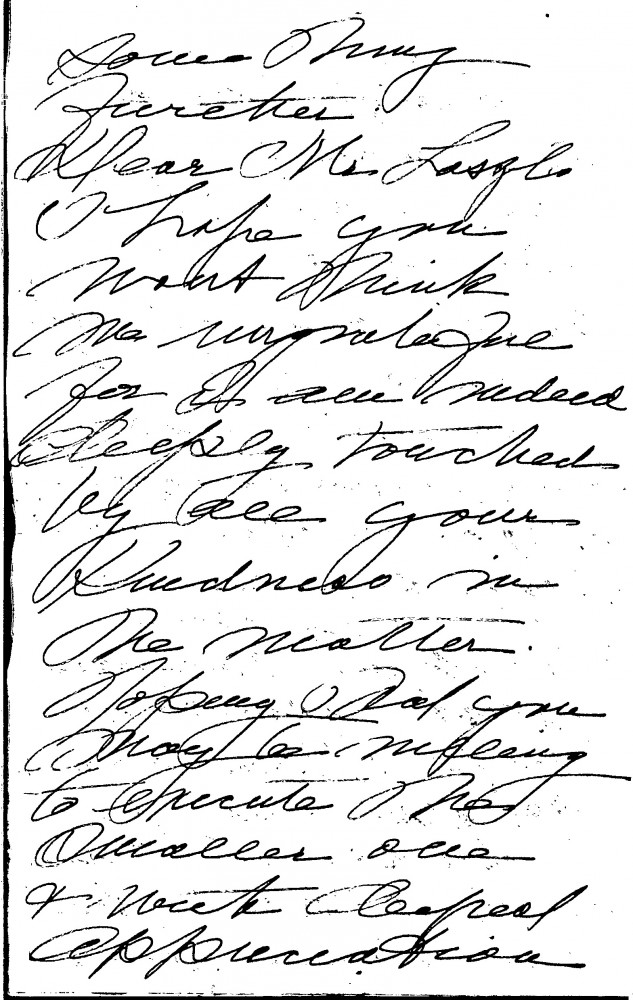 Some thing
further
Dear Mr. Laszlo
I hope you
wont think
me ungrateful
for I am indeed
deeply touched
by all your
kindness in
the matter.
Hoping that you
may be willing
to execute the
smaller one
& with deepest
appreciation